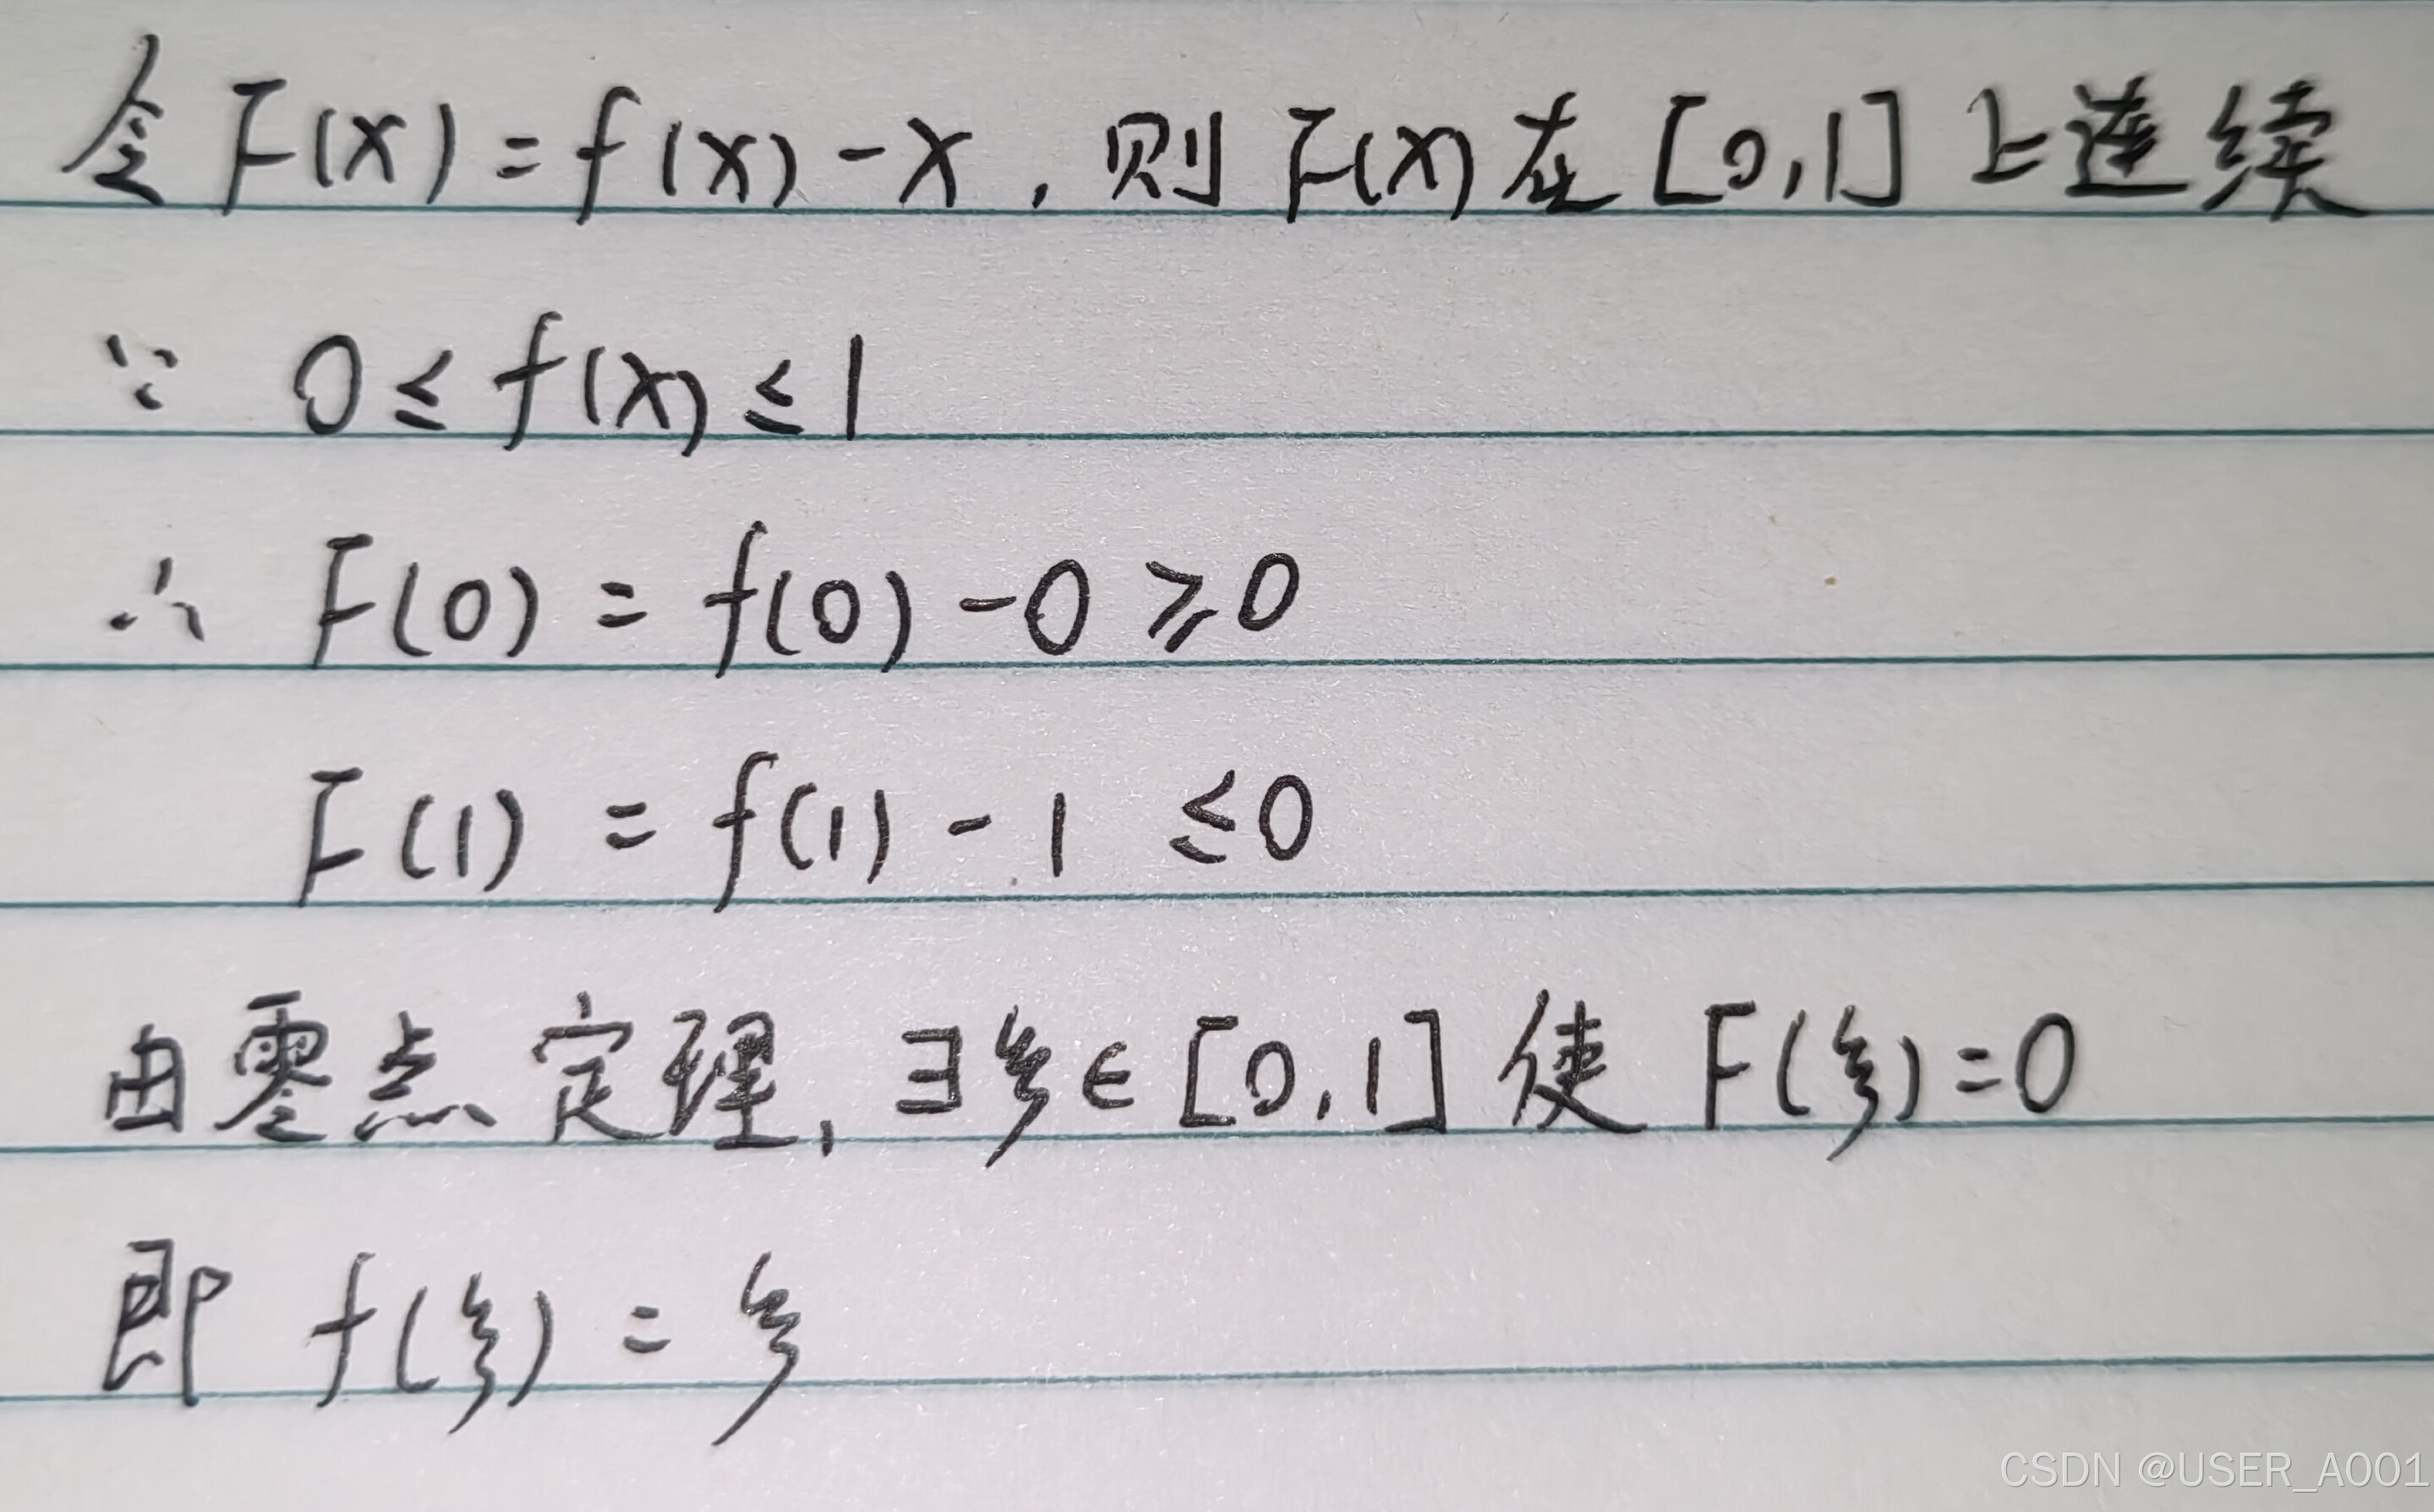 令 F(x) = f(x) - x , 则 F(x) 在 [0,1] 上连续
∵ 0 ≤ f(x) ≤ 1
∴ F(0) = f(0) - 0 ≥ 0
F(1) = f(1) - 1 ≤ 0
由零点定理, ∃ ξ ∈ [0,1] 使 F(ξ) = 0
即 f(ξ) = ξ
CSDN @USER_A001